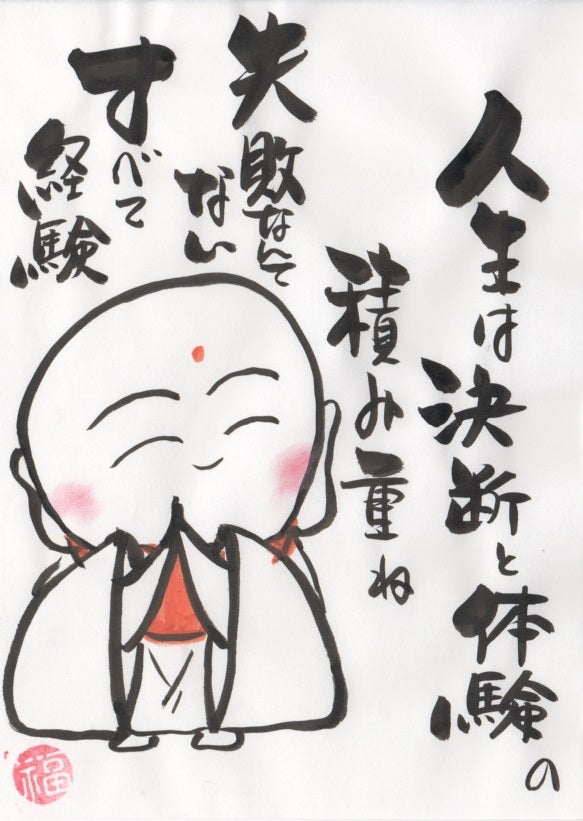 人生は決断と体験の
積み重ね
失敗なんて
ない
すべて
経験
福